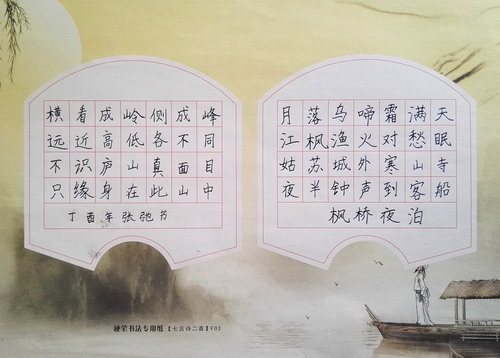 横看成岭侧成峰
远近高低各不同
不识庐山真面目
只缘身在此山中
丁酉年张弛书
月落乌啼霜满天
江枫渔火对愁眠
姑苏城外寒山寺
夜半钟声到客船
枫桥夜泊
硬笔书法专用纸【七言诗二首】F03